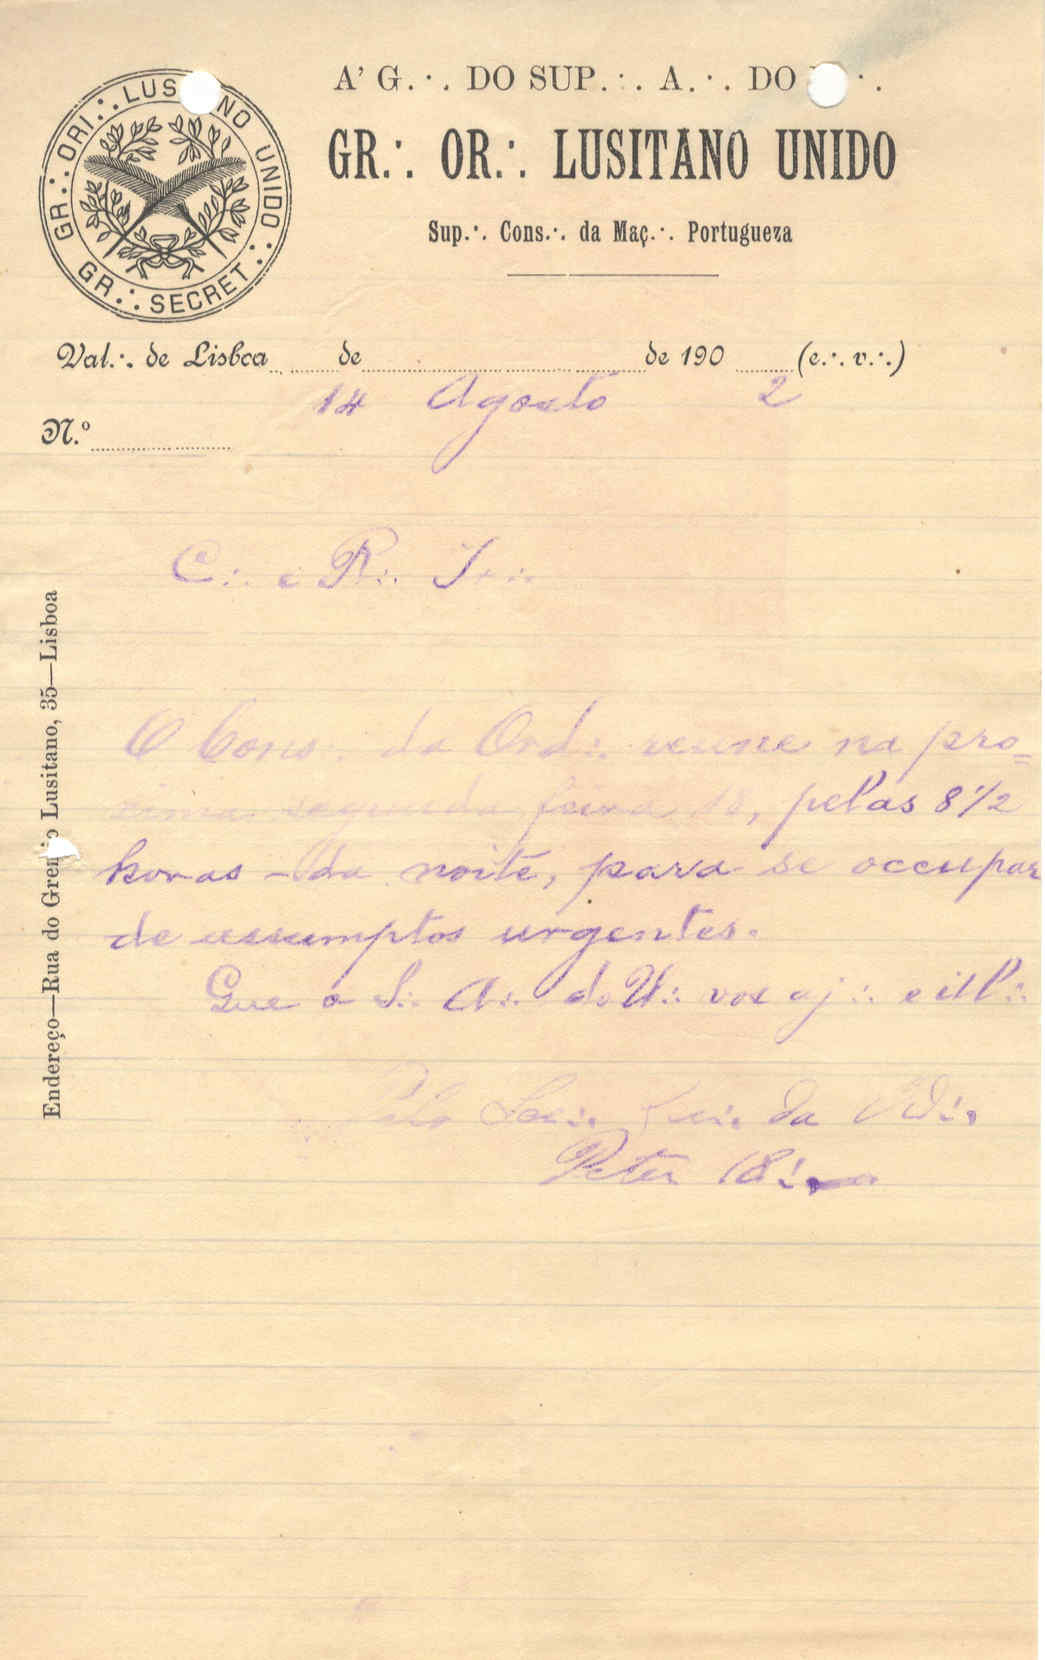 GR.·. ORI.·. LUS NO UNIDO.·.
GR.·. SECRET.·.
A' G.·. DO SUP.·. A.·. DO .·.
GR.·. OR.·. LUSITANO UNIDO
Sup.·. Cons.·. da Maç.·. Portugueza
Val.·. de Lisboa de de 190 (e.·. v.·.)
14 Agosto 2
N.º
C.·. e R.·. Ir.·.
O Cons.·. da Ord.·. reune na pro=
xima segunda feira 18, pelas 8 1/2
horas da noite, para se occupar
de assumptos urgentes.
Que o S.·. A.·. do U.·. vos aj.·. e ill.·.
Pelo Secr.·. Ger.·. da Ord.·.
Peter 18.·.
Endereço—Rua do Gremio Lusitano, 35—Lisboa